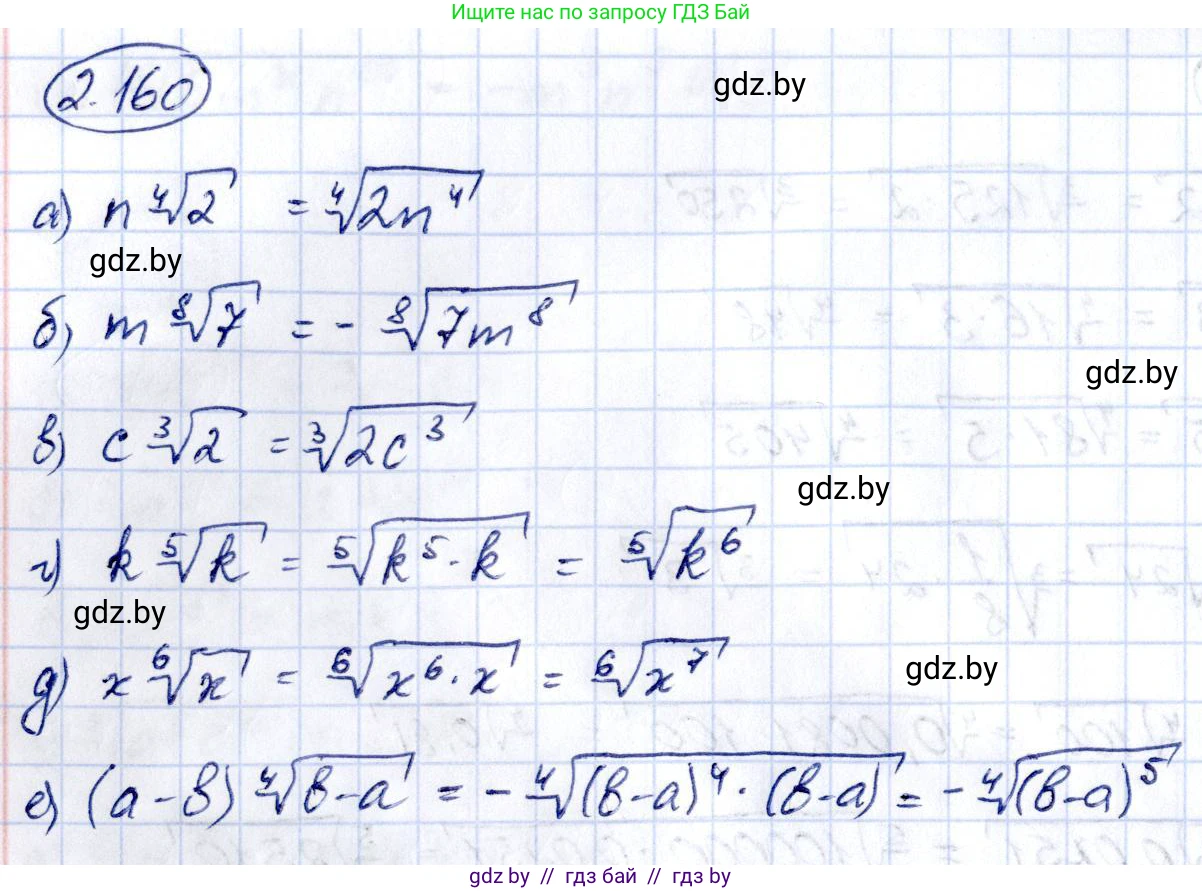 Ищите нас по запросу ГДЗ Бай
2.160
gdz.by
а) n ∜2 = ∜(2n⁴)
gdz.by
б) m ⁸√7 = - ⁸√(7m⁸)
gdz.by
в) c ³√2 = ³√(2c³)
gdz.by
г) k ⁵√k = ⁵√(k⁵ · k) = ⁵√(k⁶)
gdz.by
д) x ⁶√x = ⁶√(x⁶ · x) = ⁶√(x⁷)
gdz.by
е) (a - b) ∜(b - a) = - ∜((b - a)⁴ · (b - a)) = - ∜((b - a)⁵)
gdz.by // гдз бай // гдз by